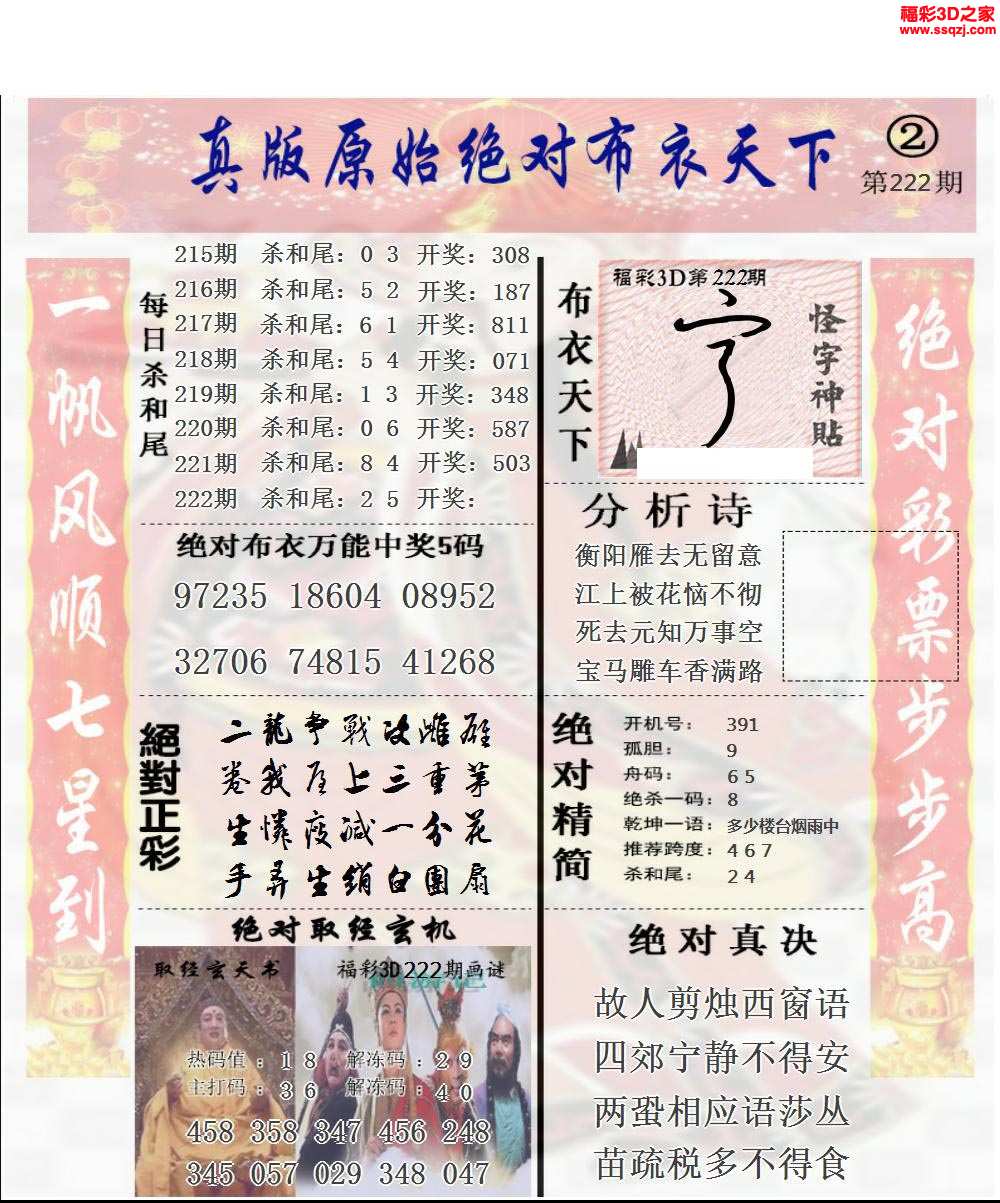 福彩3D之家
www.ssqzj.com
真版原始绝对布衣天下
②
第222期
一帆风顺七星到
每日杀和尾
215期 杀和尾：0 3 开奖：308
216期 杀和尾：5 2 开奖：187
217期 杀和尾：6 1 开奖：811
218期 杀和尾：5 4 开奖：071
219期 杀和尾：1 3 开奖：348
220期 杀和尾：0 6 开奖：587
221期 杀和尾：8 4 开奖：503
222期 杀和尾：2 5 开奖：
绝对布衣万能中奖5码
97235 18604 08952
32706 74815 41268
絕對正彩
二龍争戰决雌雄
卷我屋上三重茅
生憐瘦减一分花
手弄生綃白團扇
绝对取经玄机
取经玄天书
福彩3D222期画谜
热码值：1 8 解冻码：2 9
主打码：3 6 解冻码：4 0
458 358 347 456 248
345 057 029 348 047
布衣天下
福彩3D第222期
怪字神貼
分析诗
衡阳雁去无留意
江上被花恼不彻
死去元知万事空
宝马雕车香满路
绝对精简
开机号： 391
孤胆： 9
舟码： 6 5
绝杀一码：8
乾坤一语：多少楼台烟雨中
推荐跨度：4 6 7
杀和尾： 2 4
绝对真决
故人剪烛西窗语
四郊宁静不得安
两蛩相应语莎丛
苗疏税多不得食
绝对彩票步步高